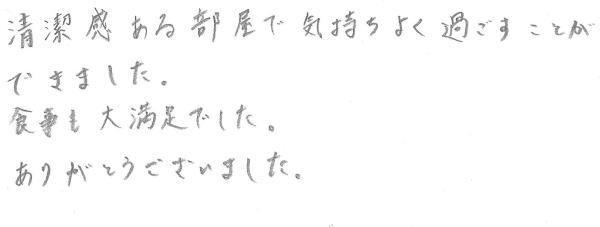 清潔感ある部屋で気持ちよく過ごすことが
できました。
食事も大満足でした。
ありがとうございました。